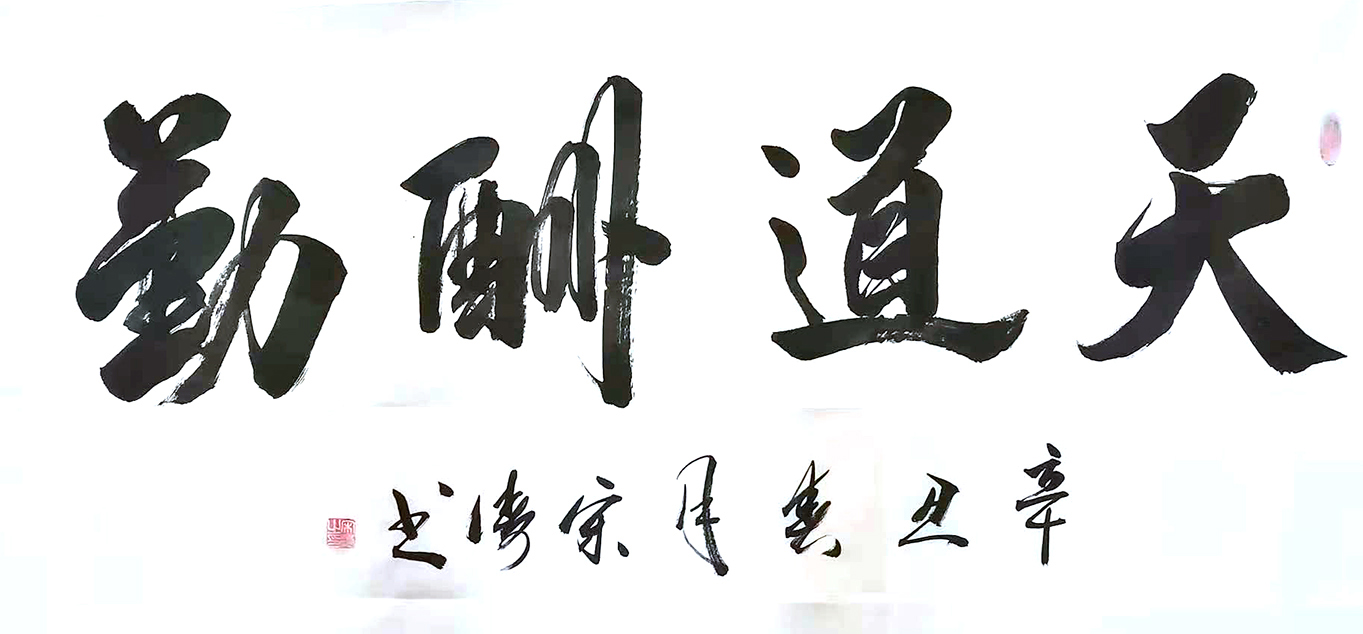 天道酬勤
辛丑春月宗涛书